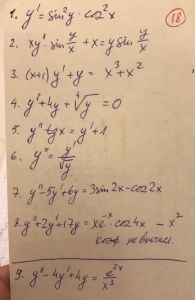 18
1. y' = sin²y · cos²x
2. xy' · sin y/x + x = y sin y/x
3. (x+1)y' + y = x³ + x²
4. y' + 4y + ⁴√y = 0
5. y'' tgx = y' + 1
6. y'' = y'/√y
7. y'' - 5y' + 6y = 3sin2x - cos2x
8. y'' + 2y' + 17y = xe⁻ˣ cos4x - x²
коэф не вычисл.
9. y'' - 4y' + 4y = e²ˣ/x³